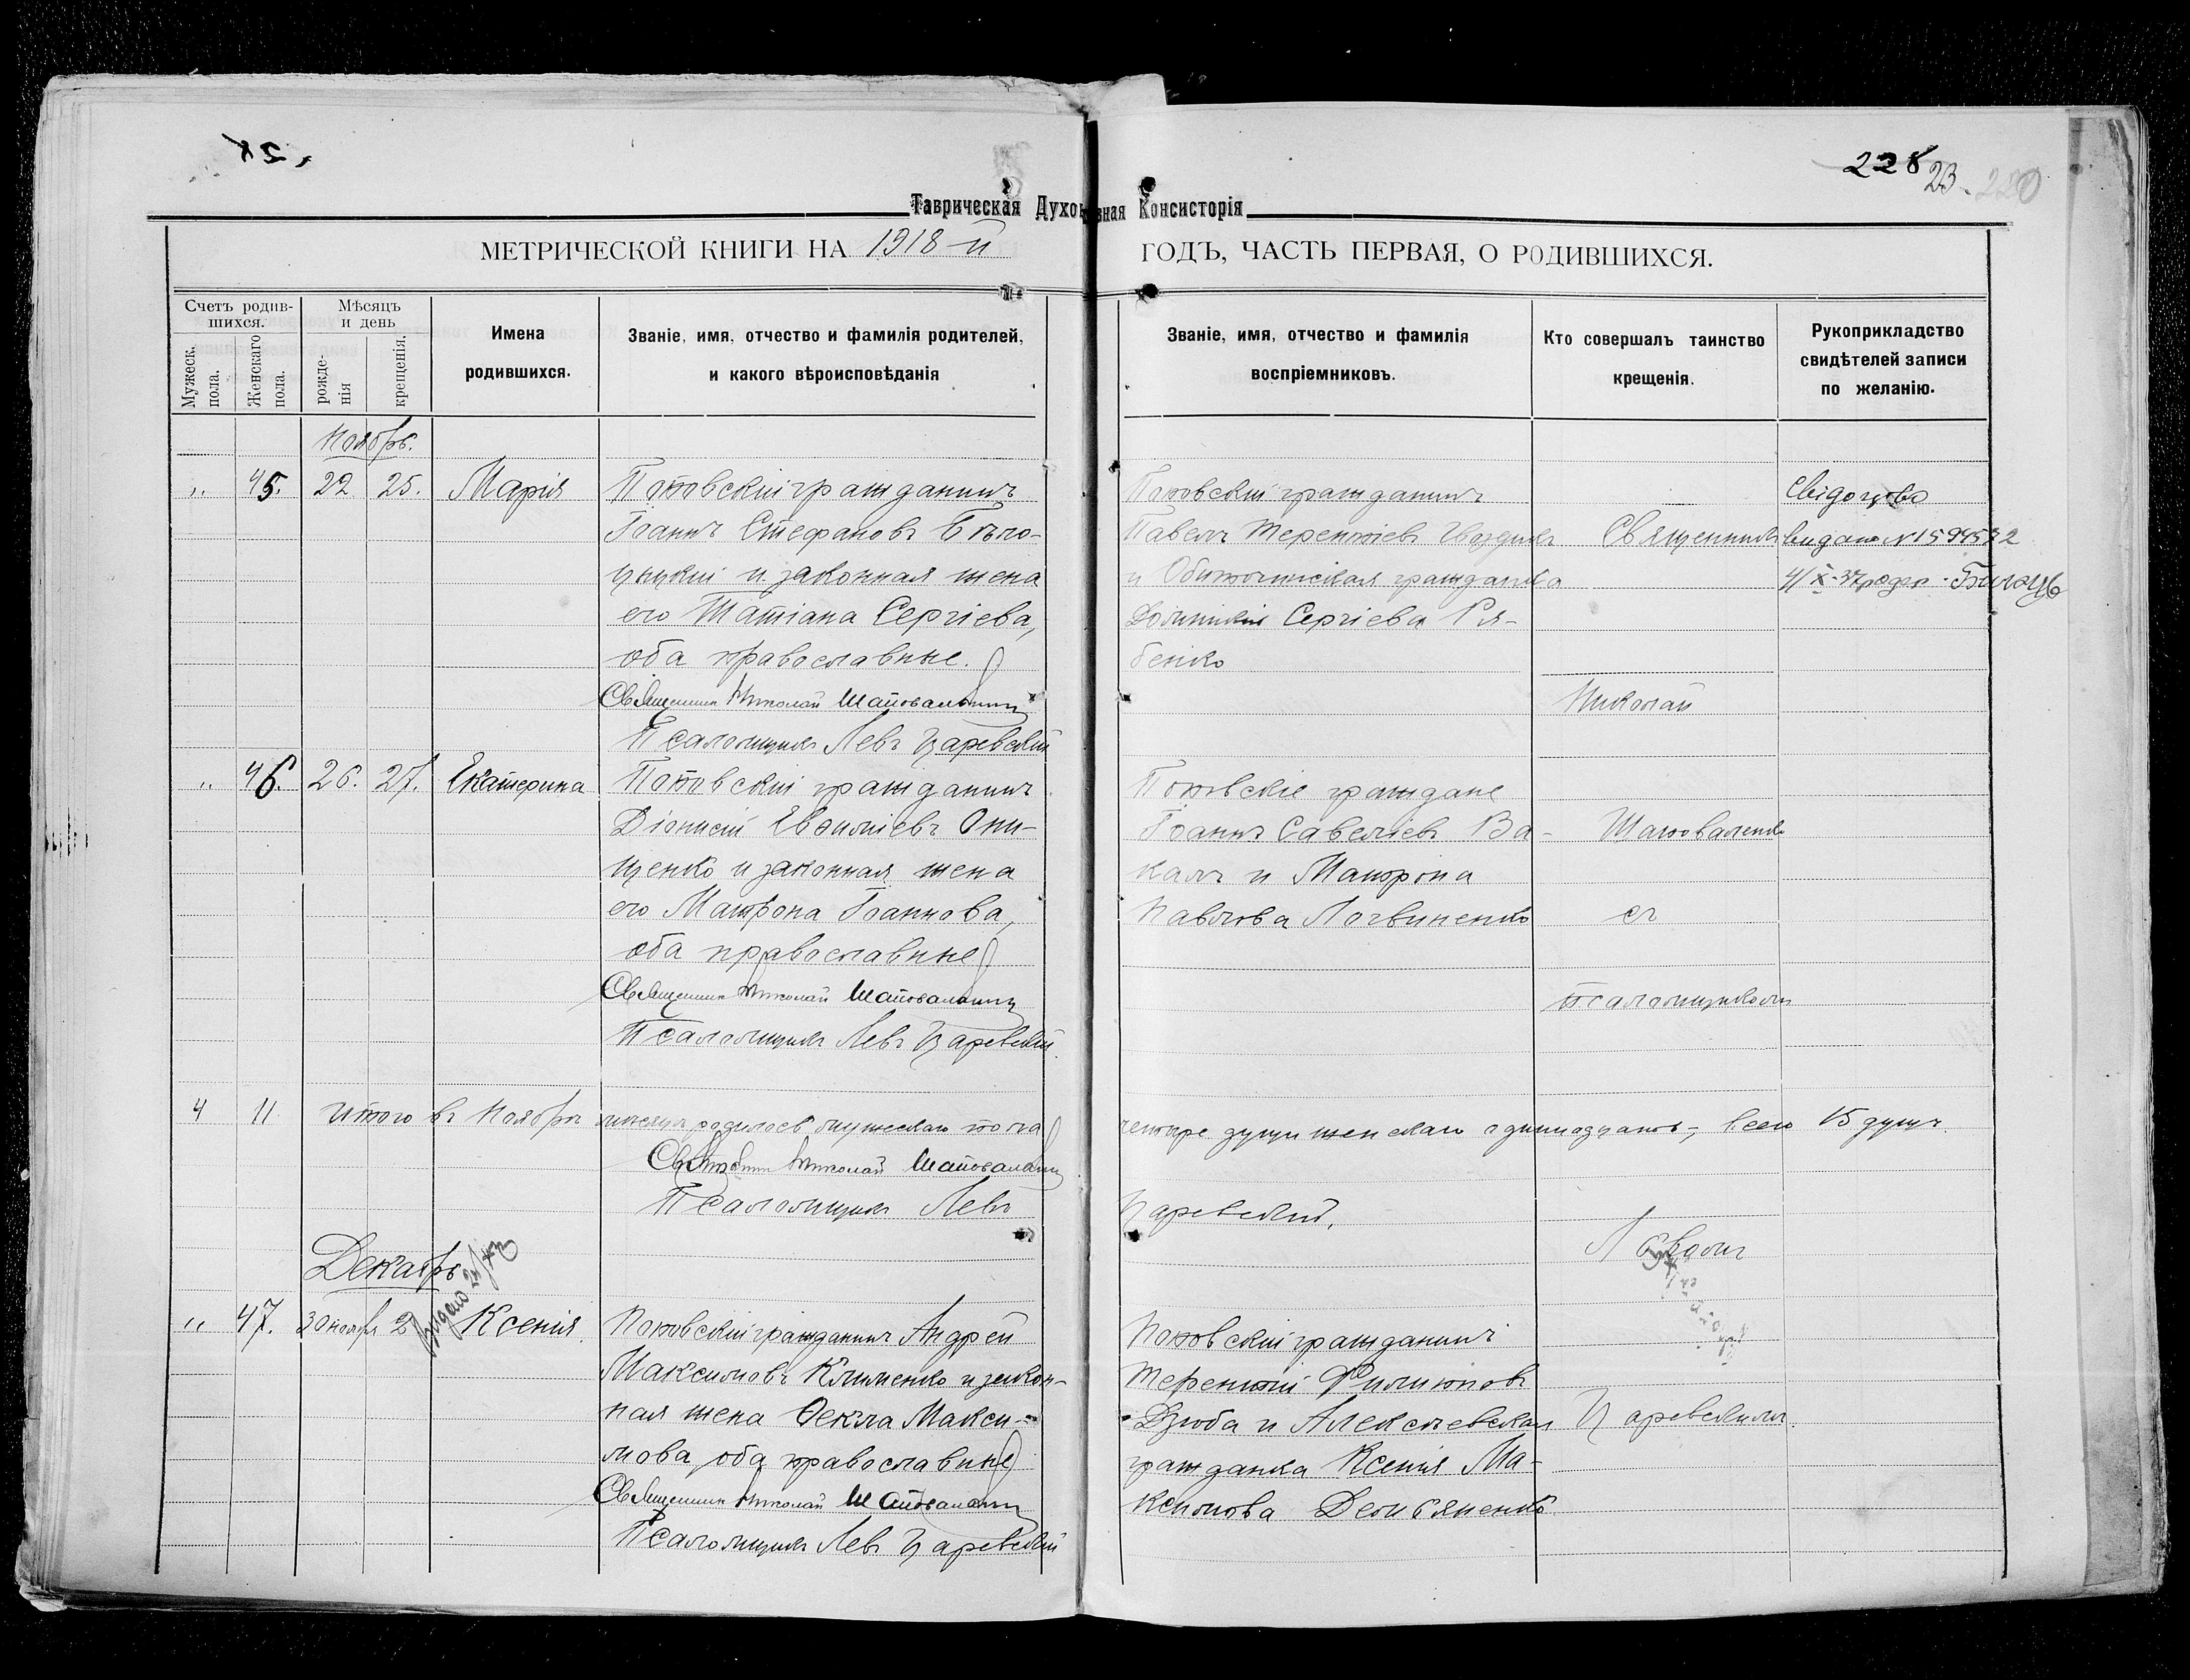 228
23
220
Таврическая Духовная Консисторія
МЕТРИЧЕСКОЙ КНИГИ НА 1918-й ГОДЪ, ЧАСТЬ ПЕРВАЯ, О РОДИВШИХСЯ.
Счетъ родившихся.
Мужеск. пола.
Женскаго пола.
Мѣсяцъ и день
рожденія
крещенія.
Имена
родившихся.
Званіе, имя, отчество и фамилія родителей,
и какого вѣроисповѣданія
Званіе, имя, отчество и фамилія
воспріемниковъ.
Кто совершалъ таинство
крещенія.
Рукоприкладство
свидѣтелей записи
по желанію.
Ноябрь.
„ 45. 22 25. Марія
Поповскій гражданинъ
Іоаннъ Стефановъ Бѣло-
и законная жена
его Татіана Сергіева,
оба православные.
Священник Николай Шаповаленко
Псаломщикъ Левъ Царевскій
Поповскій гражданинъ
Павелъ Терентіевъ
и гражданка
Сергіева Ря-
бенко
Свідоцтво
видано № 159
„ 46. 26. 27. Екатерина
Поповскій гражданинъ
Діонисій Евфиміевъ Они-
щенко и законная жена
его Матрона Іоаннова,
оба православные
Священник Николай Шаповаленко
Псаломщикъ Левъ Царевскій.
Поповскіе граждане
Іоаннъ Савеліевъ Ва-
калъ и Матрона
Павлова Логвиненко
Священникъ
Николай
Шаповаленко
съ
псаломщикомъ
Львомъ
Царевскимъ.
4 11 Итого въ Ноябрѣ мѣсяцѣ родилось мужескаго пола четыре души женскаго одиннадцать, всего 15 душъ.
Священник Николай Шаповаленко
Псаломщикъ Левъ Царевскій.
Декабрь
„ 47. 30 ноября 2 Ксенія.
Видано
Поповскій гражданинъ Андрей
Максимовъ Клименко и закон-
ная жена Ѳекла Макси-
мова, оба православные
Священник Николай Шаповаленко
Псаломщикъ Левъ Царевскій
Поповскій гражданинъ
Терентій Филиповъ
Дзюба и Алексѣевская
гражданка Ксенія Ма-
ксимова Демьяненко